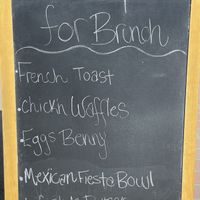 for Brunch
• French Toast
• Chickn Waffles
• Eggs Benny
• Mexican Fiesta Bowl